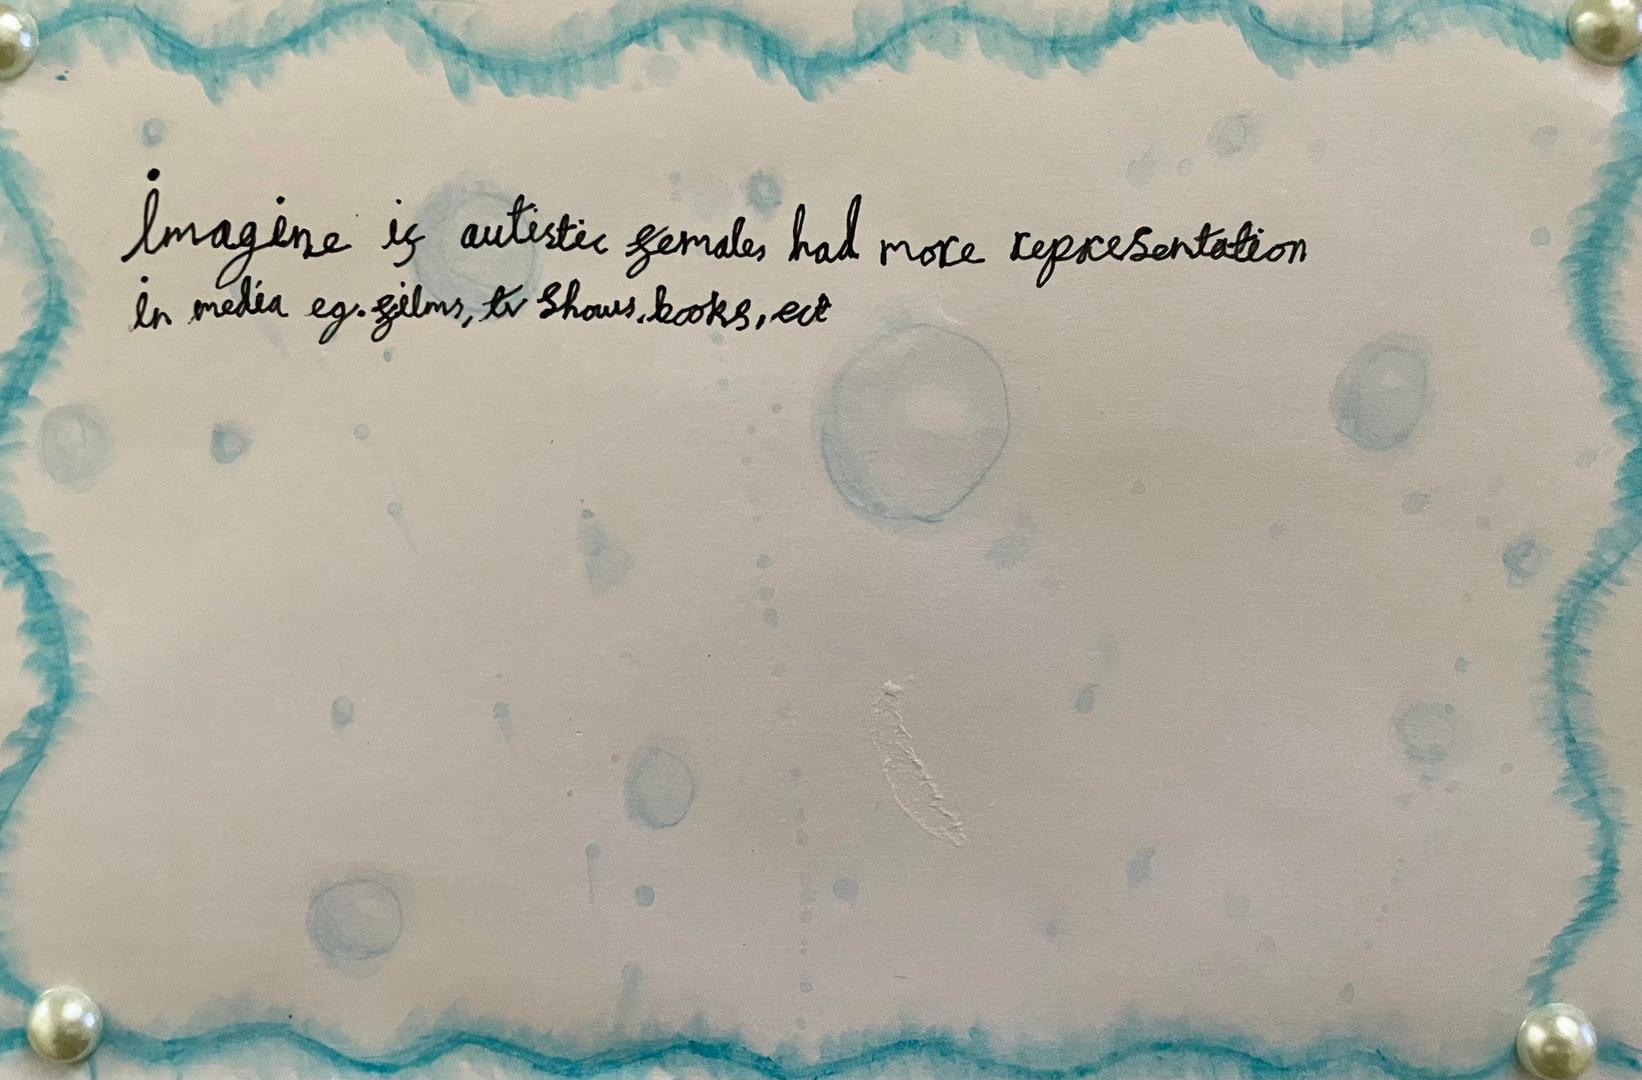 Imagine if autistic females had more representation
in media eg. films, tv shows, books, ect